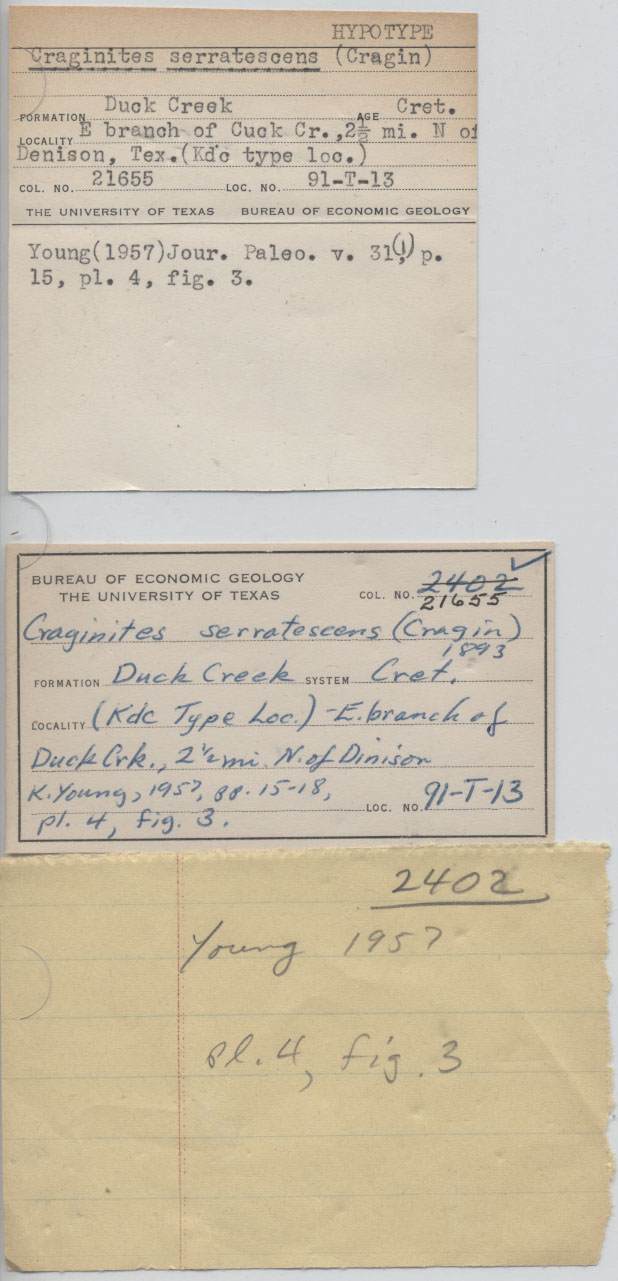 HYPOTYPE
Craginites serratescens (Cragin)
FORMATION Duck Creek AGE Cret.
LOCALITY E branch of Cuck Cr., 2½ mi. N of
Denison, Tex. (Kdc type loc.)
COL. NO. 21655 LOC. NO. 91-T-13
THE UNIVERSITY OF TEXAS BUREAU OF ECONOMIC GEOLOGY
Young(1957)Jour. Paleo. v. 31(1), p.
15, pl. 4, fig. 3.
BUREAU OF ECONOMIC GEOLOGY
THE UNIVERSITY OF TEXAS COL. NO. 2402
21655
Craginites serratescens (Cragin)
1893
FORMATION Duck Creek SYSTEM Cret.
LOCALITY (Kdc Type Loc.) - E. branch of
Duck Crk., 2½ mi. N. of Dinison
K. Young, 1957, pp. 15-18,
LOC. NO. 91-T-13
pl. 4, fig. 3.
2402
Young 1957
pl. 4, fig. 3